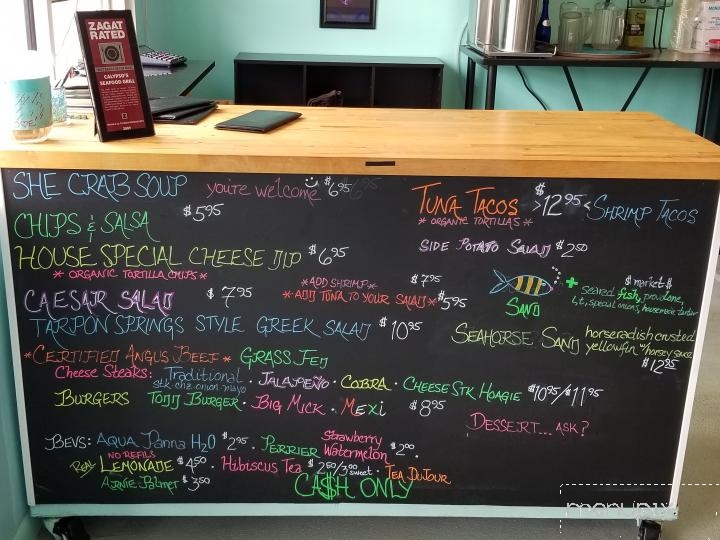 ZAGAT
RATED
CALYPSO'S
SEAFOOD GRILL
SHE CRAB SOUP you're welcome $6.95
CHIPS & SALSA $5.95
HOUSE SPECIAL CHEESE DIP $6.95
* ORGANIC TORTILLA CHIPS *
CAESAR SALAD $7.95
*ADD SHRIMP* $7.95
*ADD TUNA TO YOUR SALAD* $5.95
TARPON SPRINGS STYLE GREEK SALAD $10.95
*CERTIFIED ANGUS BEEF* GRASS FED
Cheese Steaks: Traditional · JALAPEÑO · COBRA · CHEESE STK HOAGIE $10.95/$11.95
stk·chz·onion·mayo
BURGERS TODD BURGER · BIG MICK · MEXI $8.95
TUNA TACOS >$12.95< SHRIMP TACOS
* ORGANIC TORTILLAS *
SIDE POTATO SALAD $2.50
SAND + $market$
seared fish, provolone,
l,t, special onions, housemade tartar
SEAHORSE SAND horseradish crusted
yellowfin w/horsey sauce
$12.95
DESSERT... ASK?
BEVS: AQUA PANNA H2O $2.95 · PERRIER Strawberry
Watermelon $2.00 ·
NO REFILS
Real LEMONADE $4.50 · Hibiscus Tea $2.50/3.00 sweet · TEA DU JOUR
Arnie Palmer $3.50
CA$H ONLY
menupix